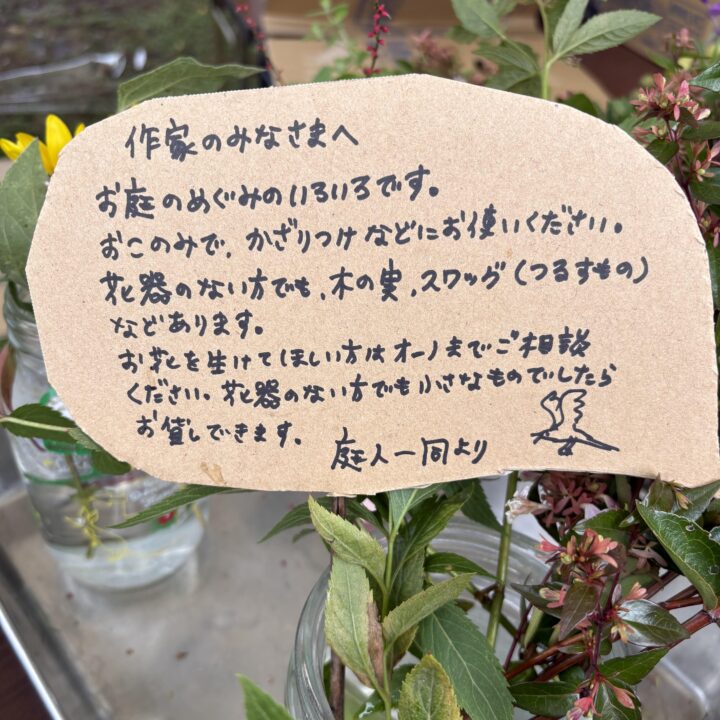 作家のみなさまへ
お庭のめぐみのいろいろです。
おこのみで、かざりつけなどにお使いください。
花器のない方でも、木の実、スワッグ(つるすもの)
などあります。
お花を生けてほしい方はオーノまでご相談
ください。花器のない方でも小さなものでしたら
お貸しできます。
庭人一同より